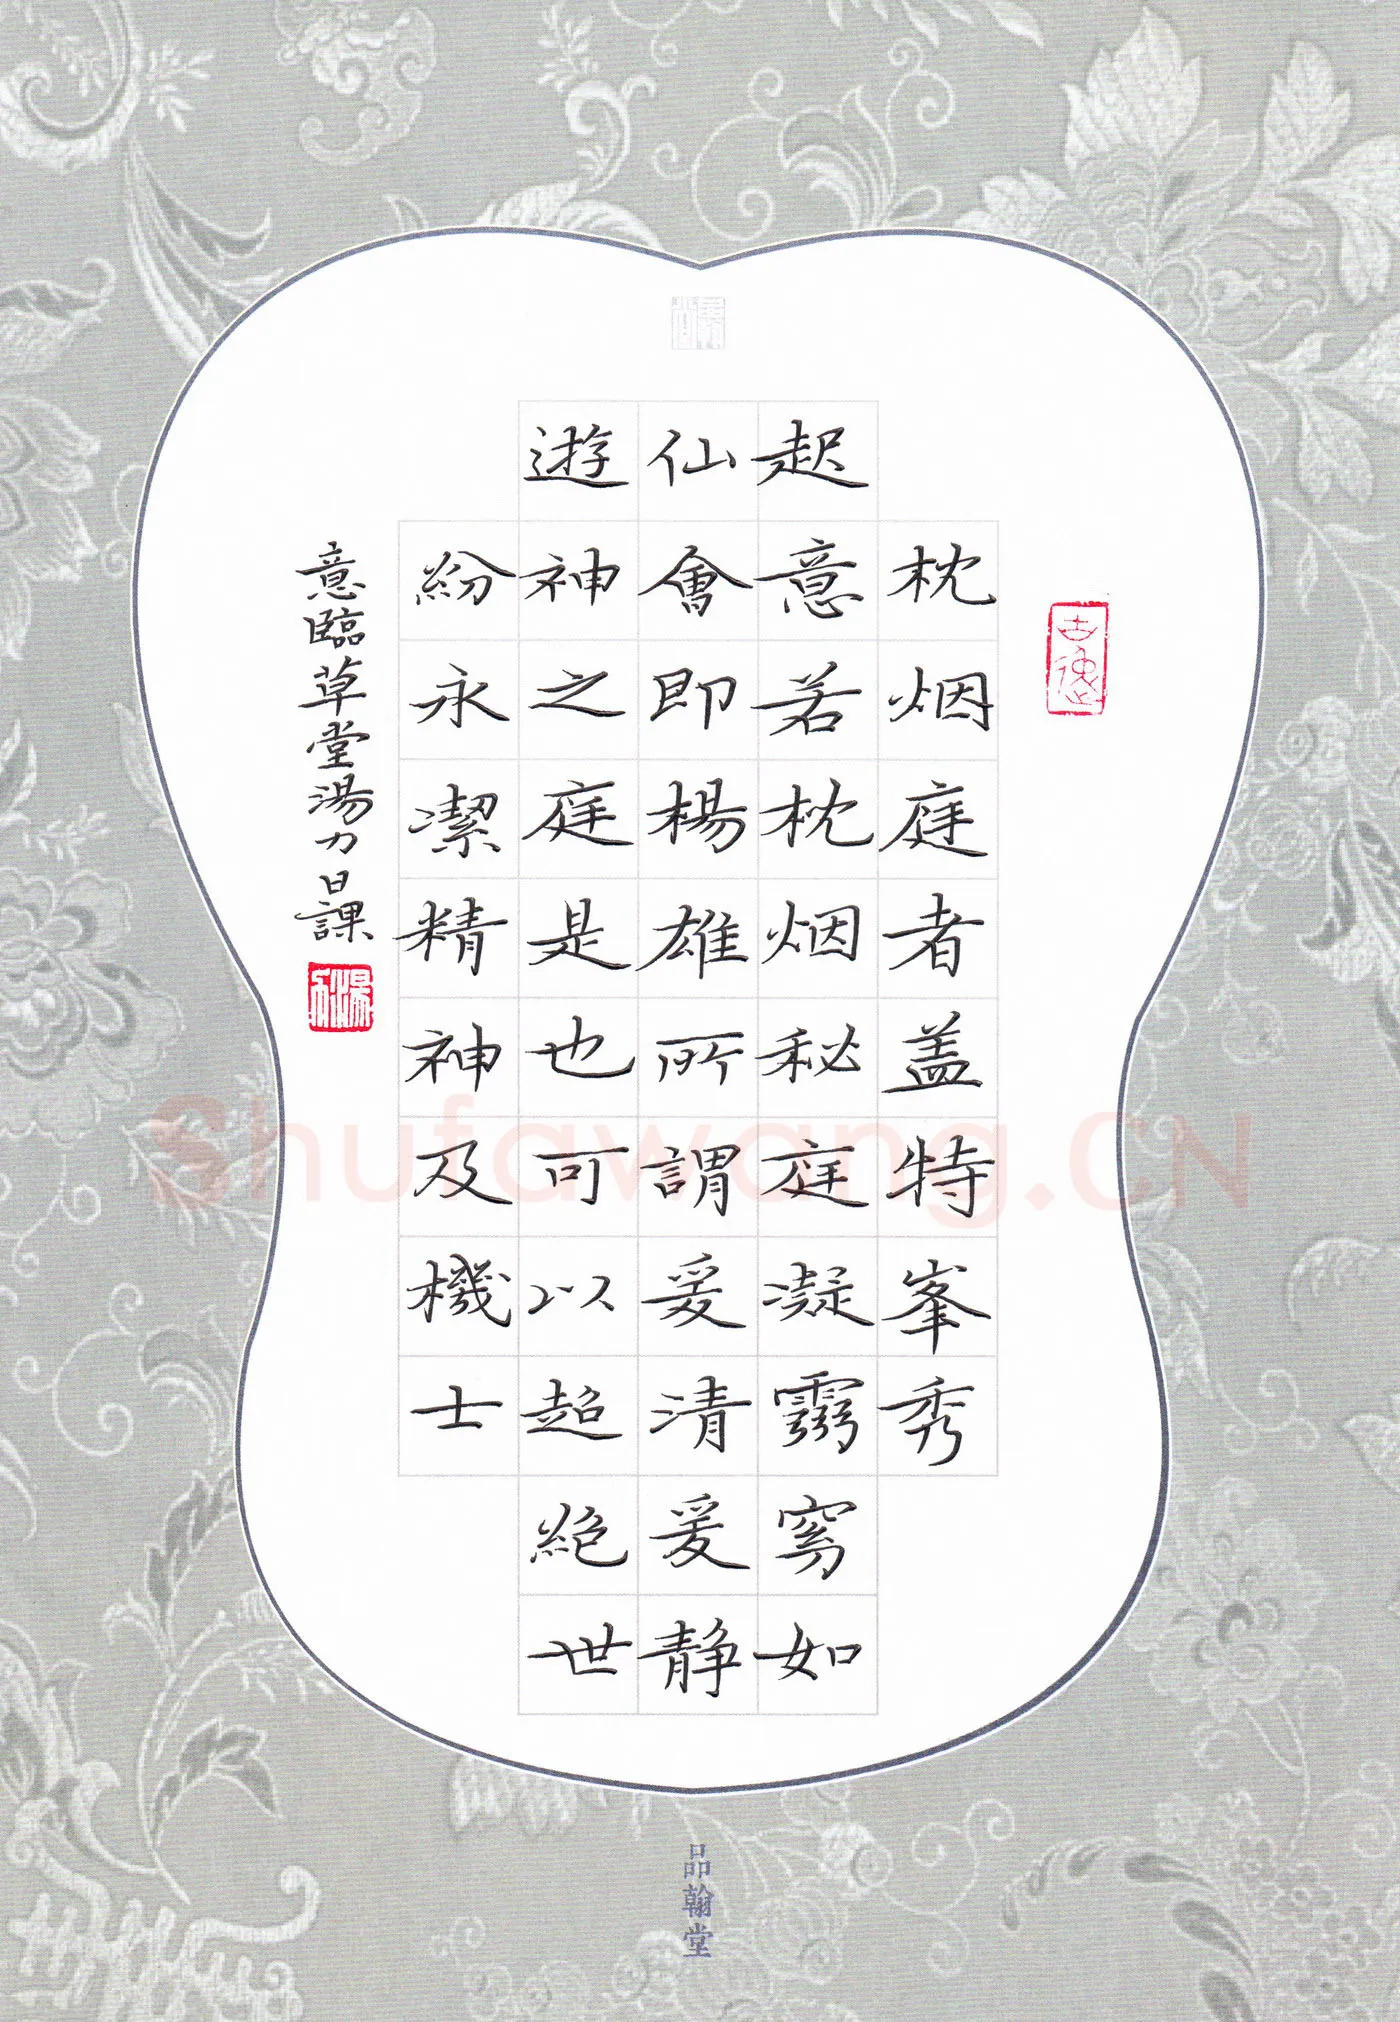 枕烟庭者盖特峯秀
起意若枕烟秘庭凝霛窈如
仙會即楊雄所謂爰清爰静
遊神之庭是也可以超絕世
紛永潔精神及機士
意臨草堂湯力日課
品翰堂
Shufawang.CN